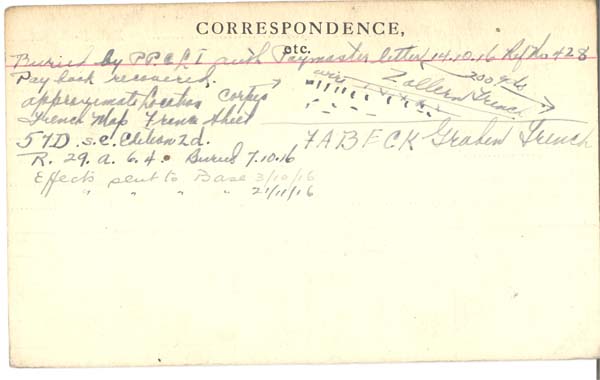 CORRESPONDENCE,
etc.
Buried by P.P.C.L.I with Paymaster letter 14.10.16 Ref No 428
Pay book recovered.
approximate Location Corps
Trench Map France Sheet
57D S.E. Edition 2d.
R. 29. a. 6.4. Buried 7.10.16
Effects sent to Base 3/10/16
" " " " 21/11/16
wire
200 yds
Zollern Trench
FABECK Graben Trench